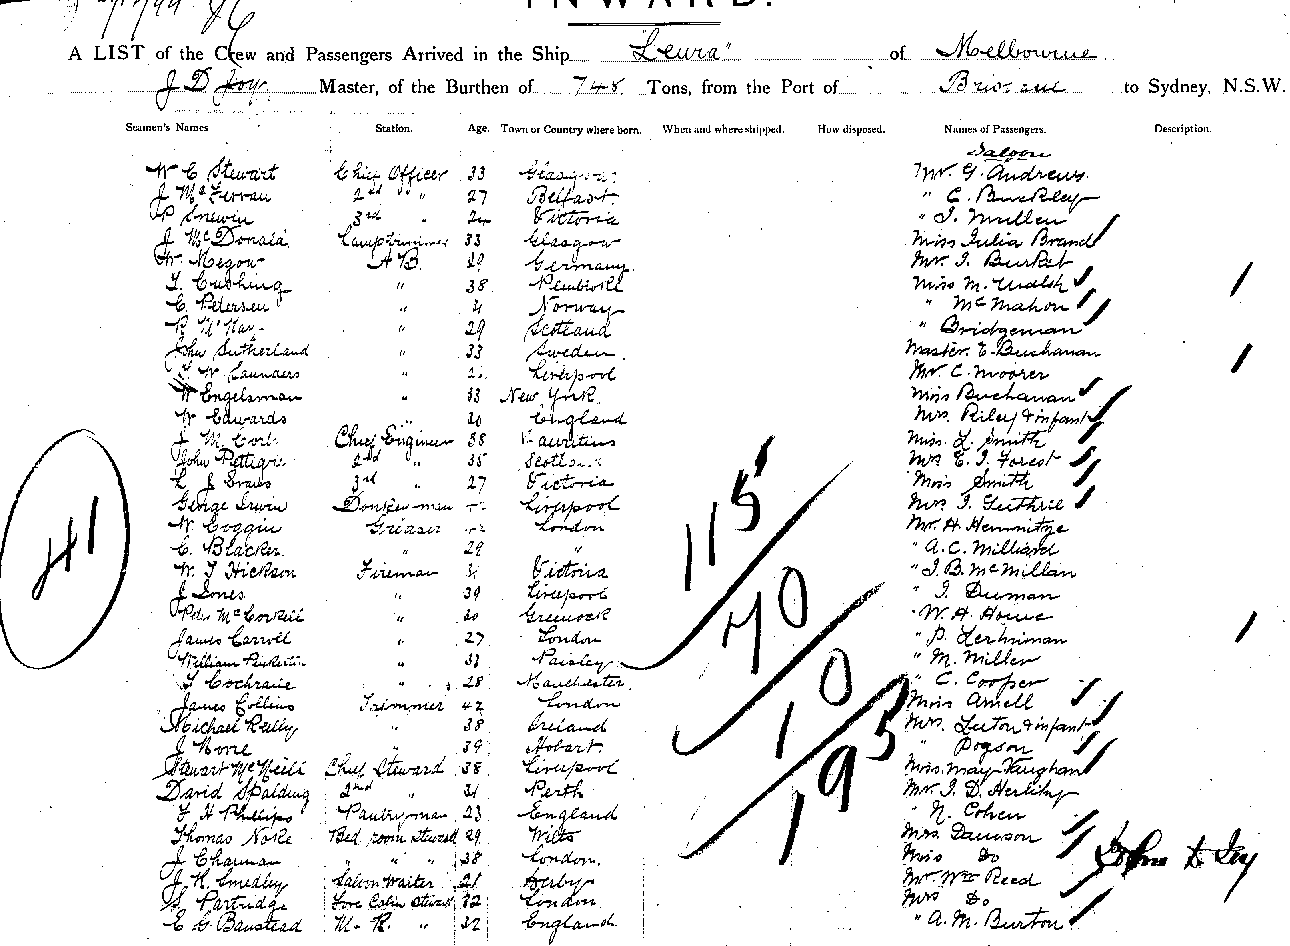 INWARD.
A LIST of the Crew and Passengers Arrived in the Ship "Leura" of Melbourne
J D Joy Master, of the Burthen of 748 Tons, from the Port of Brisbane to Sydney, N.S.W.
Seamen's Names Station. Age. Town or Country where born. When and where shipped. How disposed. Names of Passengers. Description.
Saloon
W C Stewart Chief Officer 33 Glasgow Mr. G. Andrews
J 2nd " 27 Belfast " C. Buckley
3rd " Victoria " J. Mullen
J McDonald Lamptrimmer 33 Glasgow Miss Julia Brand
W. Megow A B. 29 Germany Mr. J. Burket
T. Cushing " 38 Miss M. Walsh
C. Petersen " Norway " McMahon
" 29 Scotland " Bridgeman
John Sutherland " 33 Sweden Master E. Buchanan
Saunders " Liverpool Mr. C. Moorer
W Engelsman " 33 New York Miss Buchanan
W Edwards " 30 England Mrs. Riley & infant
J. M. Chief Engineer 38 Mauritius Miss L. Smith
John 2nd " 35 Mrs E. J. Forest
J Evans 3rd " 27 Victoria Miss Smith
George Irwin Donkeyman Liverpool Mrs J. Guthrie
W. Coggin Greaser London Mr. H.
C. Blacker " 29 " " A. C. Milliard
W. J Hickson Fireman Victoria " J. B. McMillan
J Jones " 39 Liverpool " J.
Peter McCorkill " 30 Greenock " W. H. Howe
James Carroll " 27 London " P.
William " 33 Paisley " M. Miller
Cochrane " 28 Manchester " C. Cooper
James Collins Trimmer 42 London Miss
Michael Reilly " 38 Ireland Mrs. Luton & infant
J " 39 Hobart " Dogson
Stewart McNeill Chief Steward 38 Liverpool Miss May Vaughan
David Spalding 2nd " 31 Perth Mr. J. D. Herlihy
F H Phillips Pantryman 23 England " N. Cohen
Thomas Bed room Steward 29 Wilts Mrs. Dawson
J Charman " " " 38 London Miss Do
J. H. Smedley Saloon Waiter 21 Derby Mr Wm Reed
S. Partridge Fore Cabin Steward 32 London Mrs Do
E G Banstead M. R. " 32 England " A. M. Burton
41
115
70
10
195
John D Joy